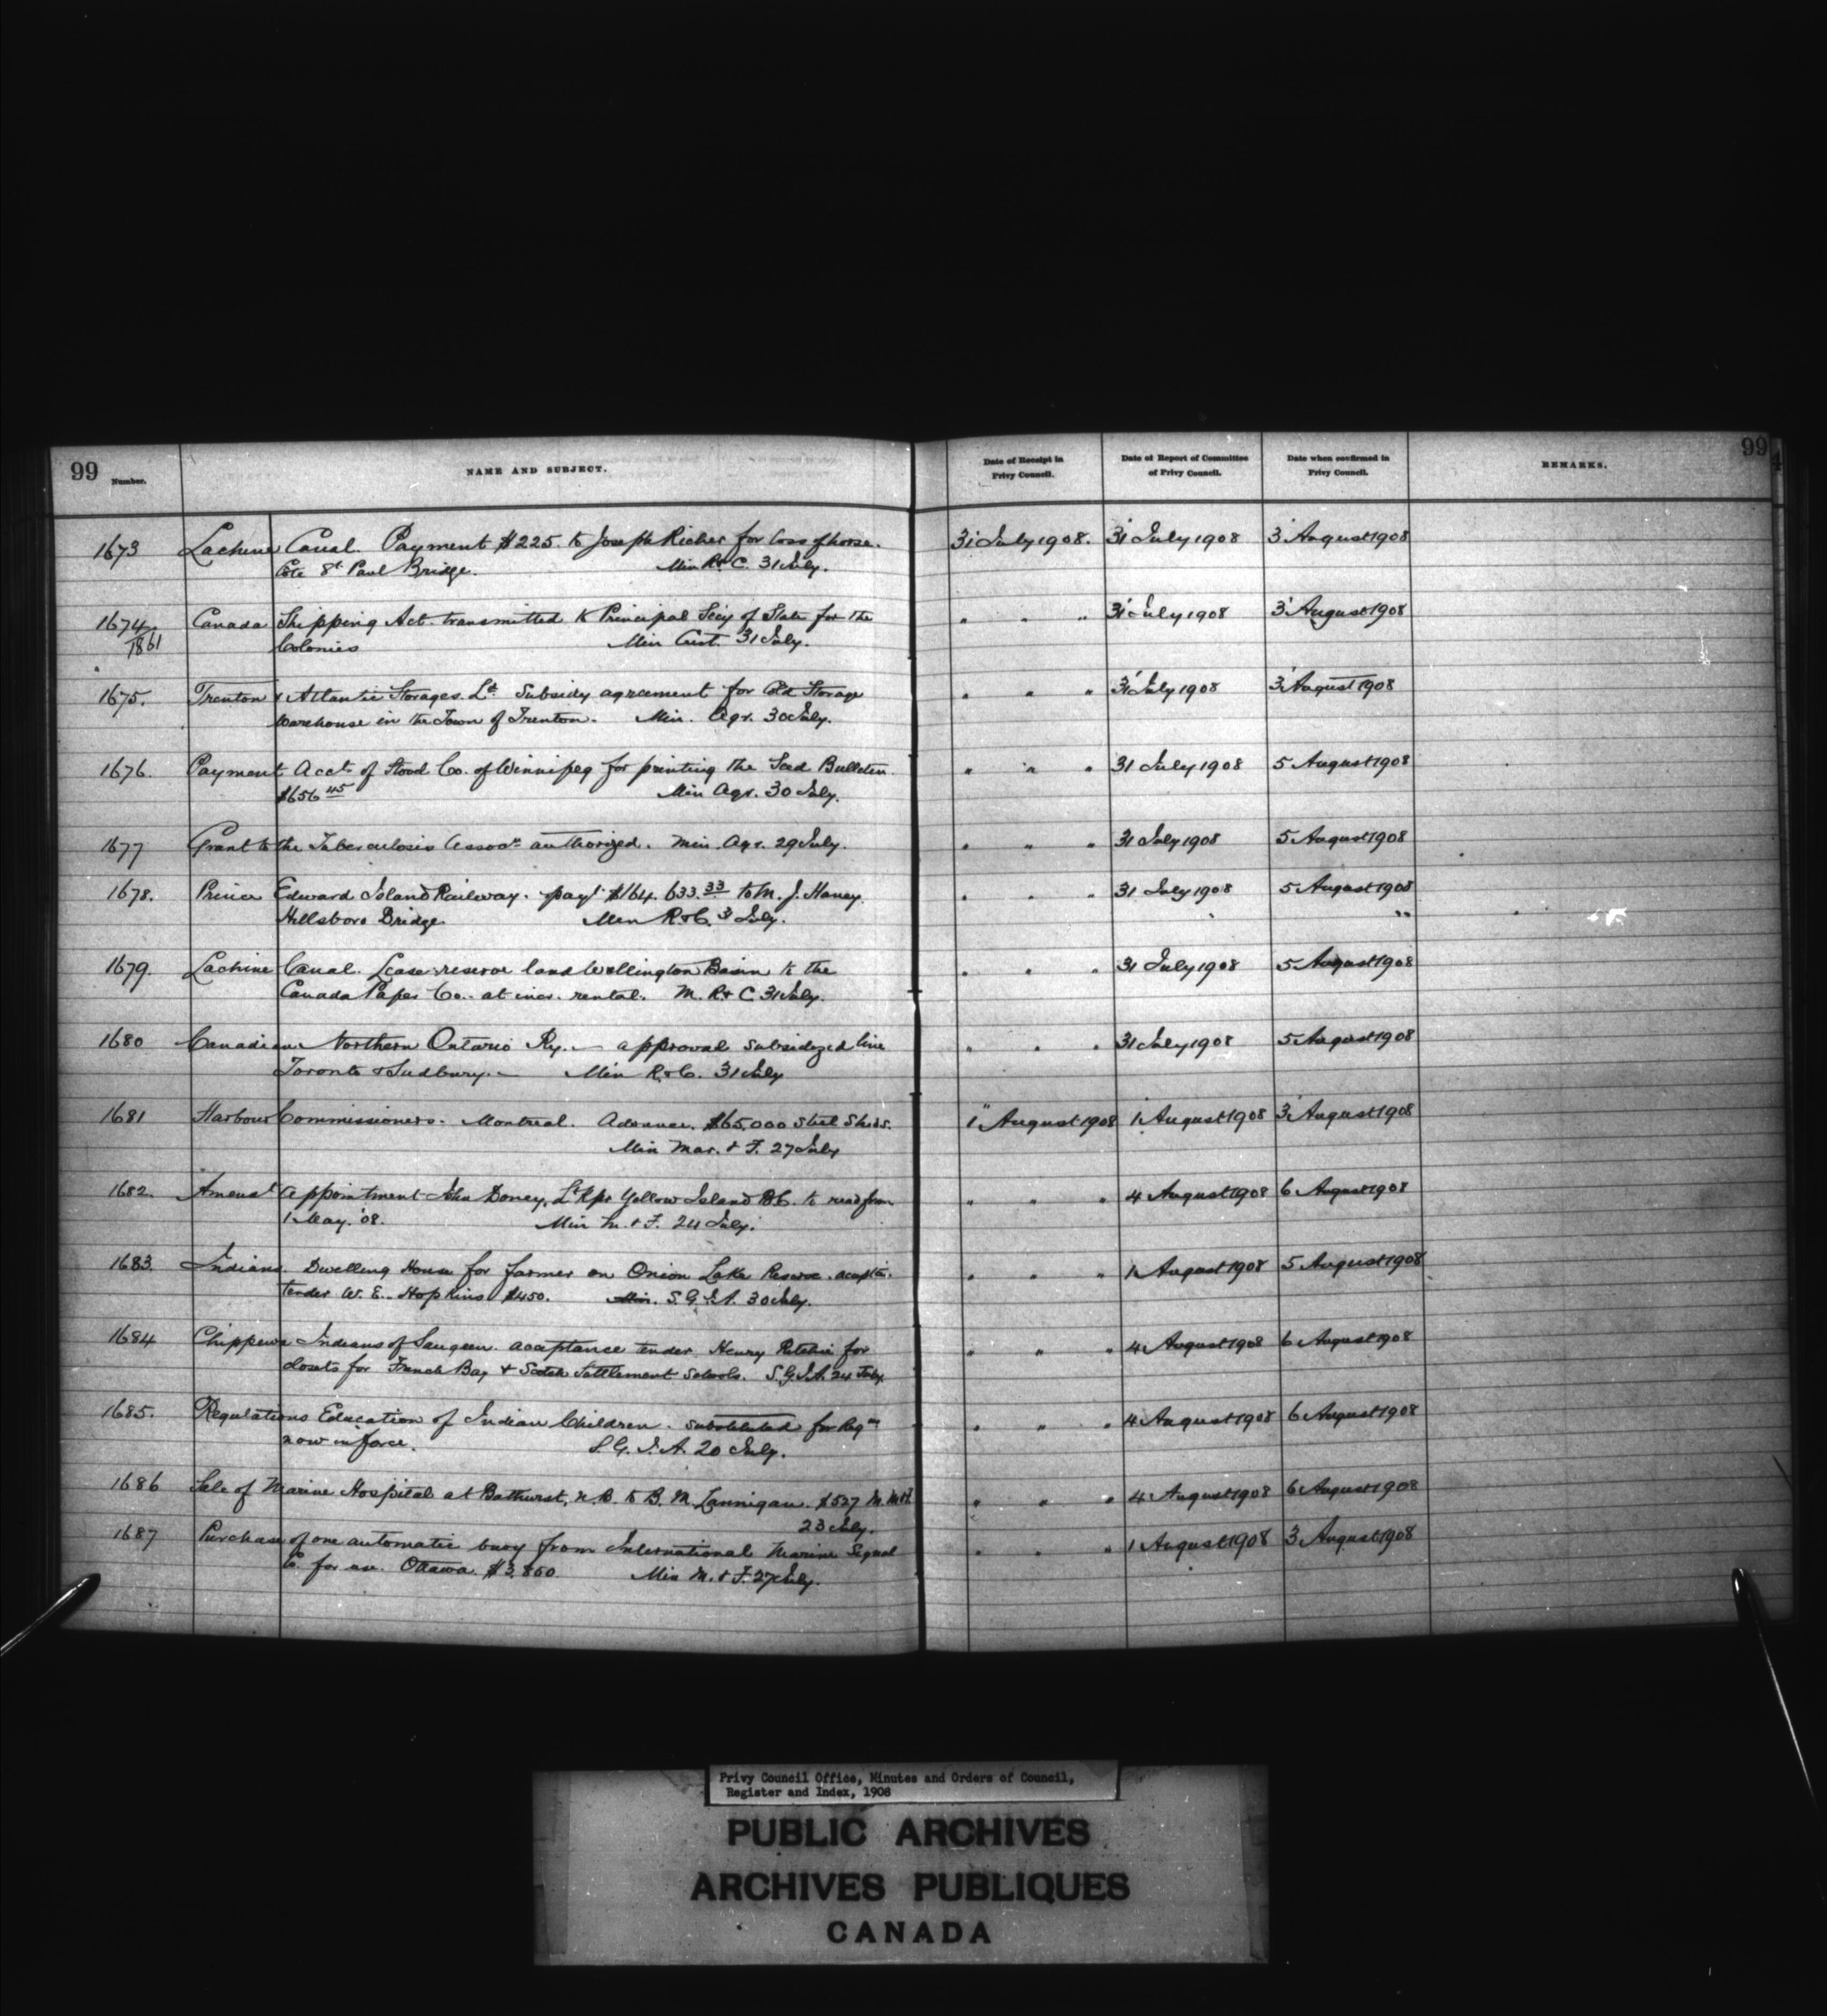 99
Number.
NAME AND SUBJECT.
Date of Receipt in Privy Council.
Date of Report of Committee of Privy Council.
Date when confirmed in Privy Council.
REMARKS.
99
1673 Lachine Canal. Payment $225. to Joseph Richer for loss of horse. 31 July 1908. 31 July 1908 3 August 1908
Cote St Paul Bridge. Min R & C. 31 July.
1674 Canada Shipping Act transmitted to Principal Secy of State for the " " " 31 July 1908 3 August 1908
1861 Colonies Min Cust. 31 July.
1675. Trenton & Atlantic Storages Ld. Subsidy agreement for Cold Storage " " " 31 July 1908 3 August 1908
warehouse in the Town of Trenton. Min. Agr. 30 July.
1676. Payment Acct. of Stood Co. of Winnipeg for printing the Seed Bulletin " " " 31 July 1908 5 August 1908
$656 45 Min Agr. 30 July.
1677 Grant to the Tuberculosis Assocn authorized. Min. Agr. 29 July. " " " 31 July 1908 5 August 1908
1678. Prince Edward Island Railway. payt $164.633.33 to M. J. Haney " " " 31 July 1908 5 August 1908
Hillsboro Bridge. Min R. & C. 3 July. "
1679. Lachine Canal. Lease reserve land Wellington Basin to the " " " 31 July 1908 5 August 1908
Canada Paper Co. at incr. rental. M. R & C. 31 July.
1680 Canadian Northern Ontario Ry. — approval subsidized line " " " 31 July 1908 5 August 1908
Toronto & Sudbury. — Min R. & C. 31 July
1681 Harbour Commissioners. Montreal. Advance. $65,000 Steel Sheds. 1 August 1908 1 August 1908 3 August 1908
Min Mar. & F. 27 July
1682. Amendt appointment John Doney, Lt Kpr Yellow Island B.C. to read from " " " 4 August 1908 6 August 1908
1 May. '08. Min M. & F. 24 July.
1683. Indians. Dwelling House for farmer on Onion Lake Reserve. " " " 1 August 1908 5 August 1908
tender W. E. Hopkins $450. Min. S. G. I. A. 30 July.
1684 Chippewa Indians of Saugeen. acceptance tender. Henry Ritchie for " " " 4 August 1908 6 August 1908
closets for French Bay & Scotch Settlement Schools. S. G. I. A. 24 July
1685. Regulations Education of Indian Children. substituted for Regns " " " 4 August 1908 6 August 1908
now in force. S. G. I. A. 20 July.
1686 Sale of Marine Hospital at Bathurst, N. B. to B. M. Lannigan. $527 " " " 4 August 1908 6 August 1908
23 July.
1687 Purchase of one automatic buoy from International Marine Signal " " " 1 August 1908 3 August 1908
Co. for use. Ottawa. $3,860 Min M. & F. 27 July.
Privy Council Office, Minutes and Orders of Council,
Register and Index, 1908
PUBLIC ARCHIVES
ARCHIVES PUBLIQUES
CANADA